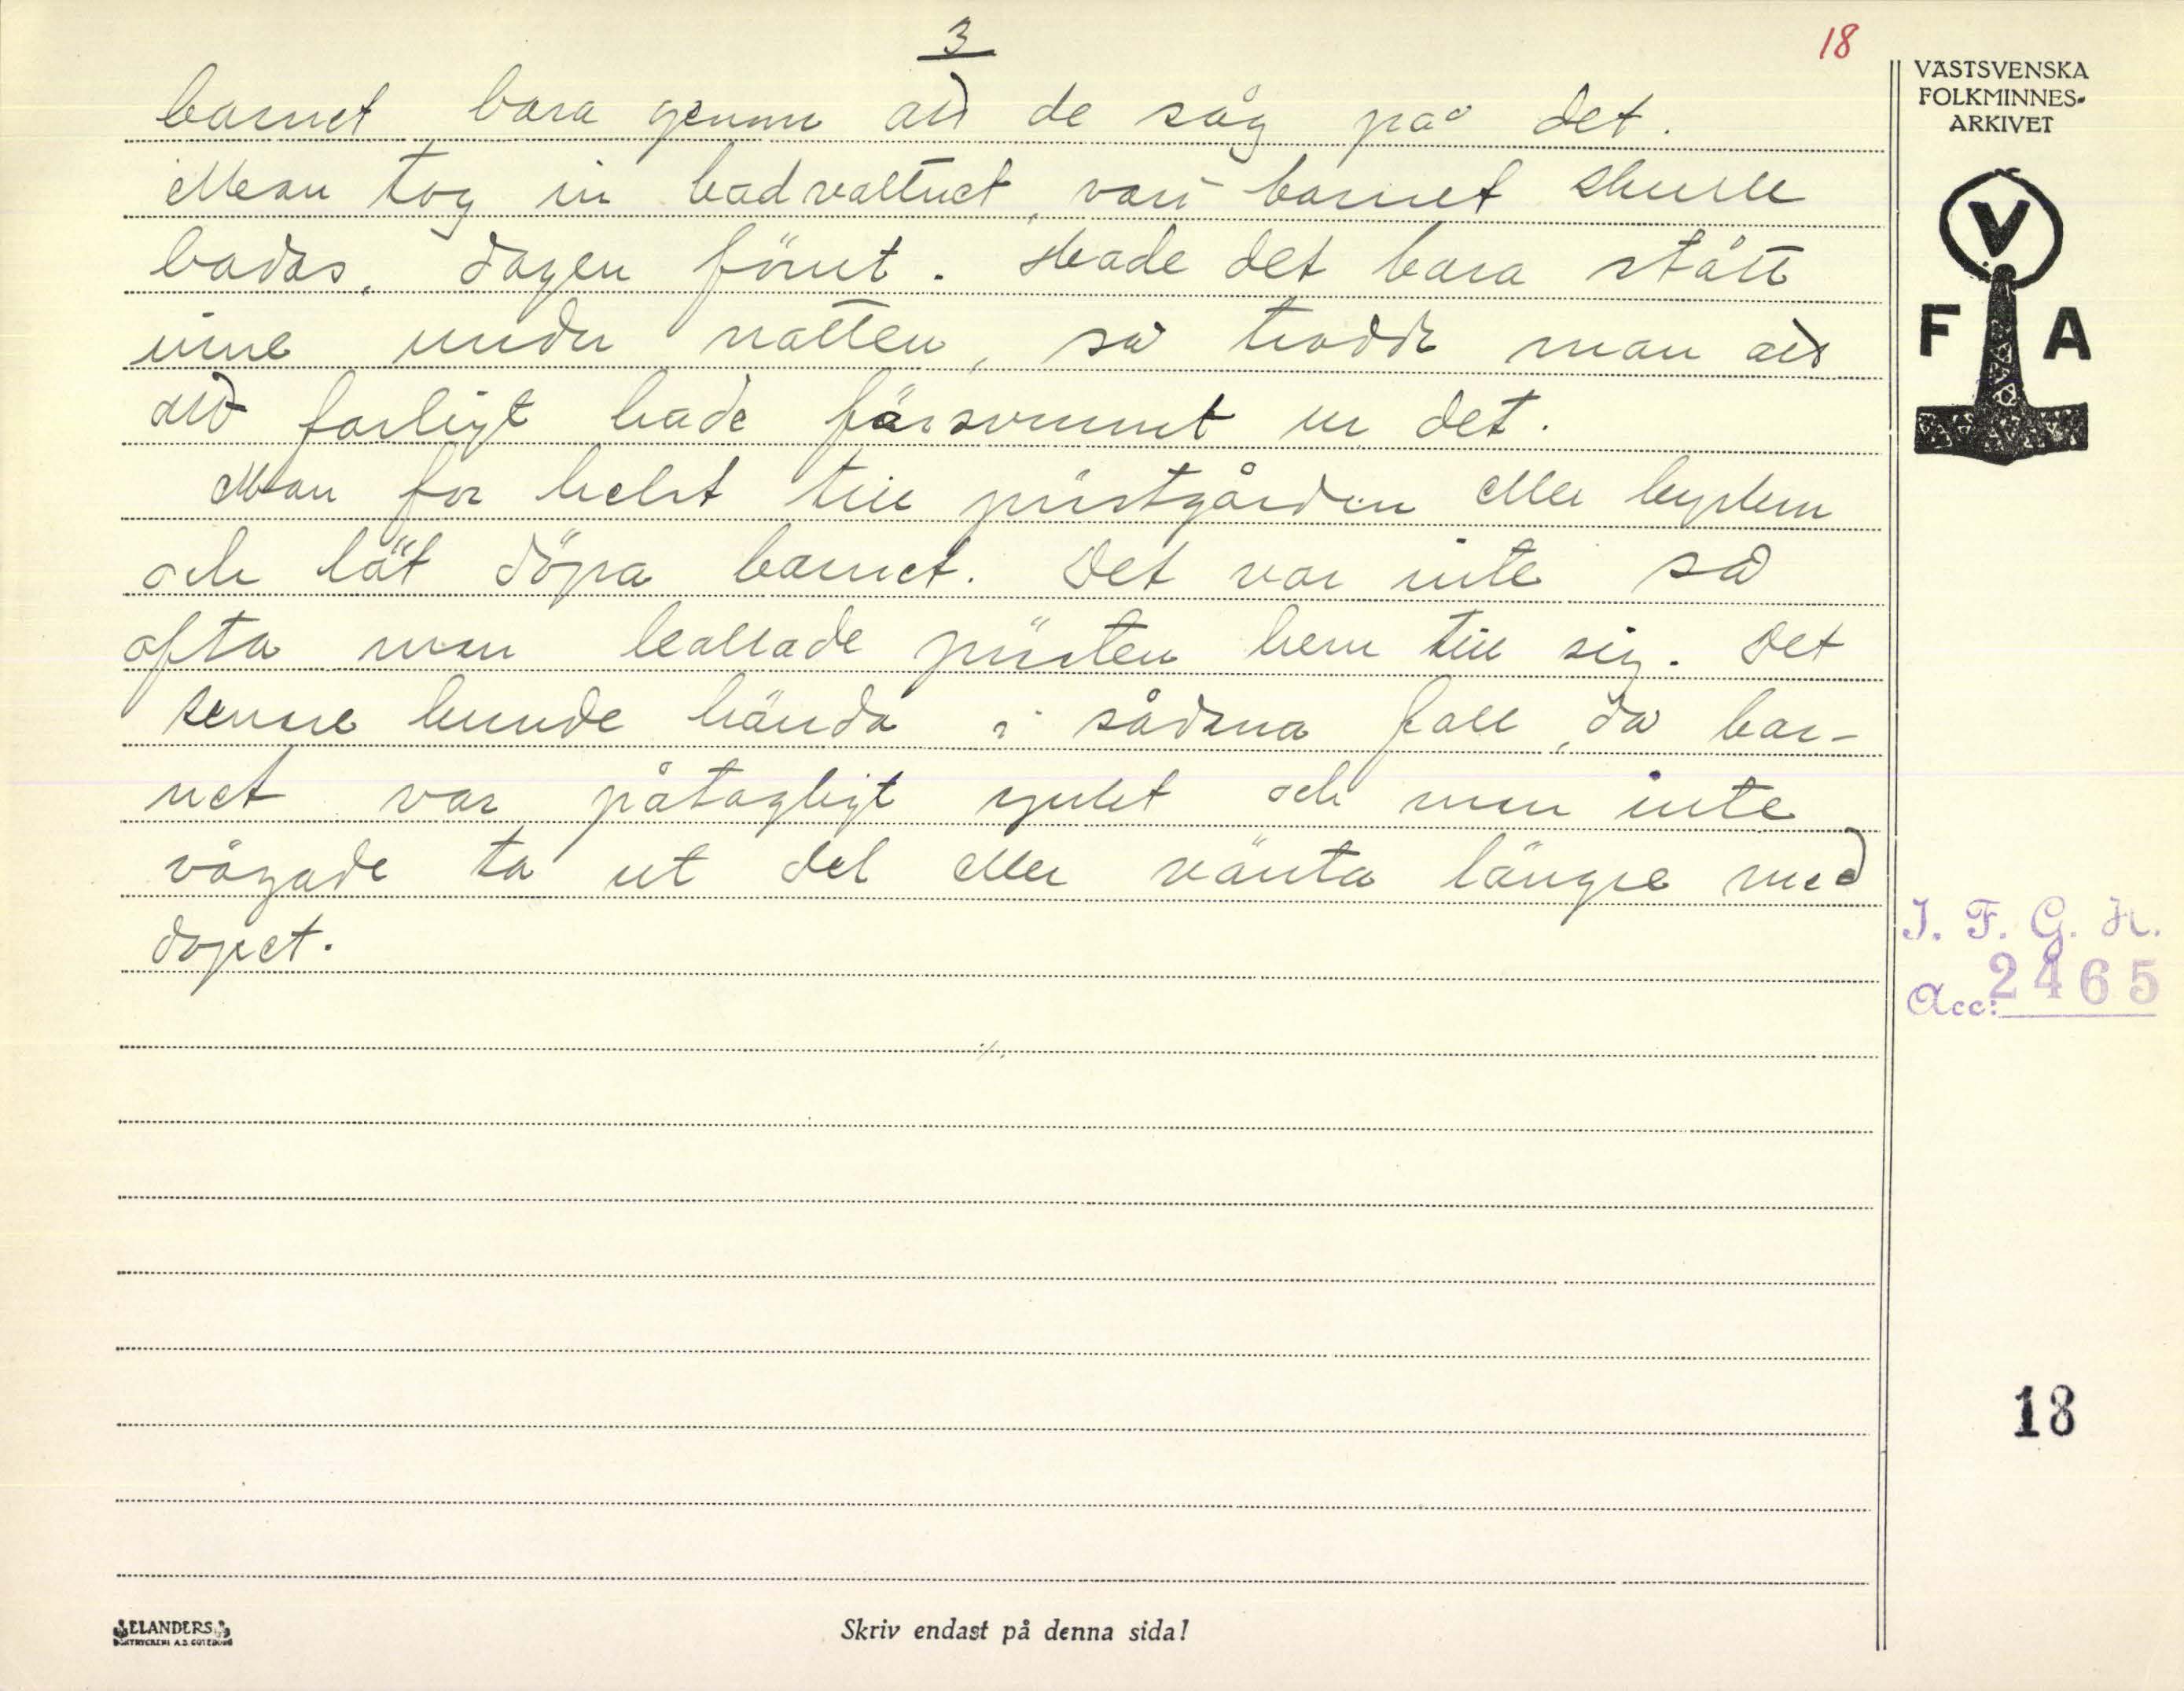 3
18
barnet bara genom att de såg på det.
Man tog in badvattnet, vari barnet skulle
badas, dagen förut. Hade det bara stått
inne under natten, så trodde man att
allt farligt hade försvunnit ur det.
Man for helst till prästgården eller kyrkan
och lät döpa barnet. Det var inte så
ofta man kallade prästen hem till sig. Det
senare kunde hända i sådana fall, då bar-
net var påtagligt sjukt och man inte
vågade ta ut det eller vänta längre med
dopet.
./.
VÄSTSVENSKA
FOLKMINNES-
ARKIVET
V
F A
I. F. G. H.
Acc: 2465
18
ELANDERS
BOKTRYCKERI A.B. GÖTEBORG
Skriv endast på denna sida!